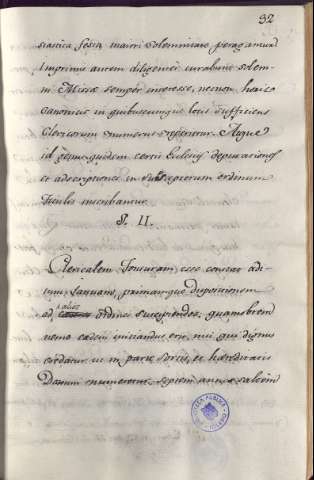 32
siastica festa maiori solemnitate peragantur
Imprimis autem diligenter curabunt solem-
ni Missae semper interesse, necnon horis
canonicis in quibuscumque locis sufficiens
Clericorum numerus reperietur. Atque
id genus quidem certis Ecclesiis deputationes
et adscriptiones in sacrorum ordinum
Titulis inscribantur.
§. II.
Clericalem Tonsuram, esse constat adi-
tum, januam, primamque dispositionem
ad alios Ordines suscipiendos, quamobrem
nemo eadem initiandus erit, nisi qui dignus
credatur ut in parte sortis, et haereditatis
Domini numeretur, septem annos saltem
BIBLIOTECA PUBLICA